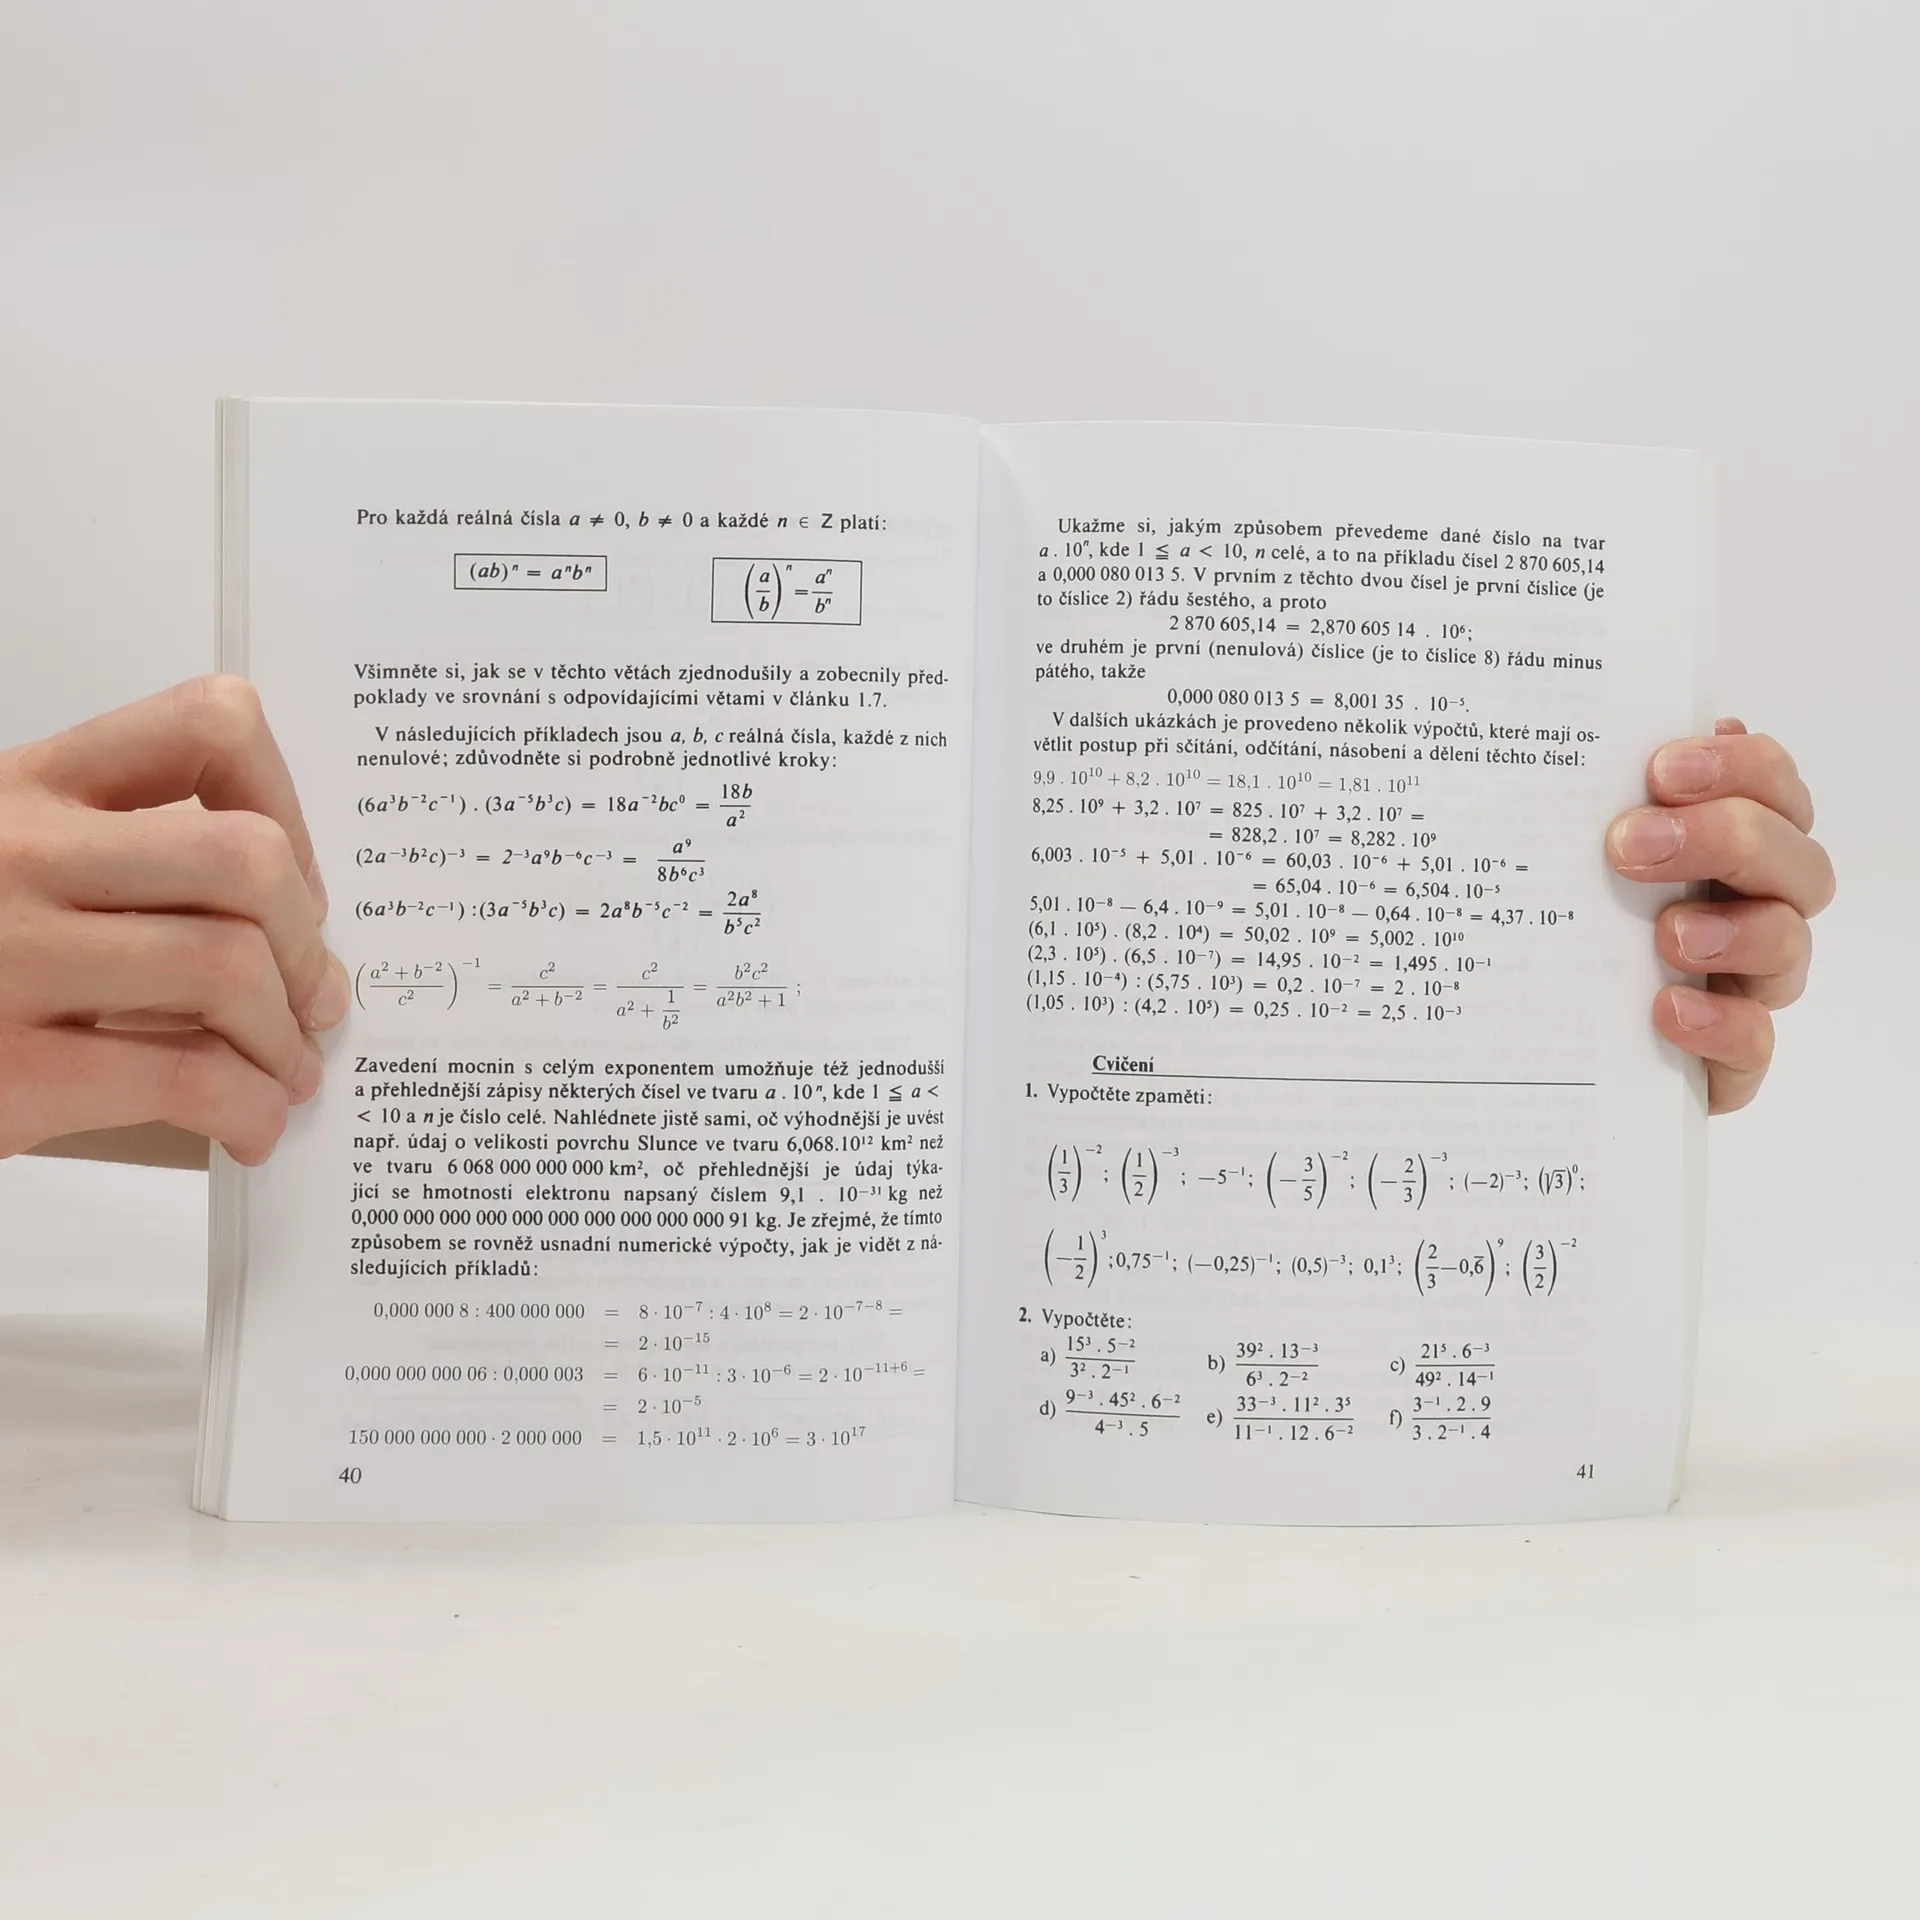 Pro každá reálná čísla a ≠ 0, b ≠ 0 a každé n ∈ Z platí:
(ab)ⁿ = aⁿbⁿ
(a/b)ⁿ = aⁿ/bⁿ
Všimněte si, jak se v těchto větách zjednodušily a zobecnily před-
poklady ve srovnání s odpovídajícími větami v článku 1.7.
V následujících příkladech jsou a, b, c reálná čísla, každé z nich
nenulové; zdůvodněte si podrobně jednotlivé kroky:
(6a³b⁻²c⁻¹) . (3a⁻⁵b³c) = 18a⁻²bc⁰ = 18b/a²
(2a⁻³b²c)⁻³ = 2⁻³a⁹b⁻⁶c⁻³ = a⁹/8b⁶c³
(6a³b⁻²c⁻¹) :(3a⁻⁵b³c) = 2a⁸b⁻⁵c⁻² = 2a⁸/b⁵c²
((a² + b⁻²)/c²)⁻¹ = c²/(a² + b⁻²) = c²/(a² + 1/b²) = b²c²/(a²b² + 1) ;
Zavedení mocnin s celým exponentem umožňuje též jednodušší
a přehlednější zápisy některých čísel ve tvaru a . 10ⁿ, kde 1 ≦ a <
< 10 a n je číslo celé. Nahlédnete jistě sami, oč výhodnější je uvést
např. údaj o velikosti povrchu Slunce ve tvaru 6,068.10¹² km² než
ve tvaru 6 068 000 000 000 km², oč přehlednější je údaj týka-
jící se hmotnosti elektronu napsaný číslem 9,1 . 10⁻³¹ kg než
0,000 000 000 000 000 000 000 000 000 000 91 kg. Je zřejmé, že tímto
způsobem se rovněž usnadní numerické výpočty, jak je vidět z ná-
sledujících příkladů:
0,000 000 8 : 400 000 000 = 8 · 10⁻⁷ : 4 · 10⁸ = 2 · 10⁻⁷⁻⁸ =
= 2 · 10⁻¹⁵
0,000 000 000 06 : 0,000 003 = 6 · 10⁻¹¹ : 3 · 10⁻⁶ = 2 · 10⁻¹¹⁺⁶ =
= 2 · 10⁻⁵
150 000 000 000 · 2 000 000 = 1,5 · 10¹¹ · 2 · 10⁶ = 3 · 10¹⁷
40
Ukažme si, jakým způsobem převedeme dané číslo na tvar
a . 10ⁿ, kde 1 ≦ a < 10, n celé, a to na příkladu čísel 2 870 605,14
a 0,000 080 013 5. V prvním z těchto dvou čísel je první číslice (je
to číslice 2) řádu šestého, a proto
2 870 605,14 = 2,870 605 14 . 10⁶;
ve druhém je první (nenulová) číslice (je to číslice 8) řádu minus
pátého, takže
0,000 080 013 5 = 8,001 35 . 10⁻⁵.
V dalších ukázkách je provedeno několik výpočtů, které mají os-
větlit postup při sčítání, odčítání, násobení a dělení těchto čísel:
9,9 . 10¹⁰ + 8,2 . 10¹⁰ = 18,1 . 10¹⁰ = 1,81 . 10¹¹
8,25 . 10⁹ + 3,2 . 10⁷ = 825 . 10⁷ + 3,2 . 10⁷ =
= 828,2 . 10⁷ = 8,282 . 10⁹
6,003 . 10⁻⁵ + 5,01 . 10⁻⁶ = 60,03 . 10⁻⁶ + 5,01 . 10⁻⁶ =
= 65,04 . 10⁻⁶ = 6,504 . 10⁻⁵
5,01 . 10⁻⁸ — 6,4 . 10⁻⁹ = 5,01 . 10⁻⁸ — 0,64 . 10⁻⁸ = 4,37 . 10⁻⁸
(6,1 . 10⁵) . (8,2 . 10⁴) = 50,02 . 10⁹ = 5,002 . 10¹⁰
(2,3 . 10⁵) . (6,5 . 10⁻⁷) = 14,95 . 10⁻² = 1,495 . 10⁻¹
(1,15 . 10⁻⁴) : (5,75 . 10³) = 0,2 . 10⁻⁷ = 2 . 10⁻⁸
(1,05 . 10³) : (4,2 . 10⁵) = 0,25 . 10⁻² = 2,5 . 10⁻³
Cvičení
1. Vypočtěte zpaměti:
(1/3)⁻²; (1/2)⁻³; —5⁻¹; (—3/5)⁻²; (—2/3)⁻³; (—2)⁻³; (√3)⁰;
(—1/2)³;0,75⁻¹; (—0,25)⁻¹; (0,5)⁻³; 0,1³; (2/3—0,6̅)⁹; (3/2)⁻²
2. Vypočtěte:
a) 15³ . 5⁻²/3² . 2⁻¹ b) 39² . 13⁻³/6³ . 2⁻² c) 21⁵ . 6⁻³/49² . 14⁻¹
d) 9⁻³ . 45² . 6⁻²/4⁻³ . 5 e) 33⁻³ . 11² . 3⁵/11⁻¹ . 12 . 6⁻² f) 3⁻¹ . 2 . 9/3 . 2⁻¹ . 4
41